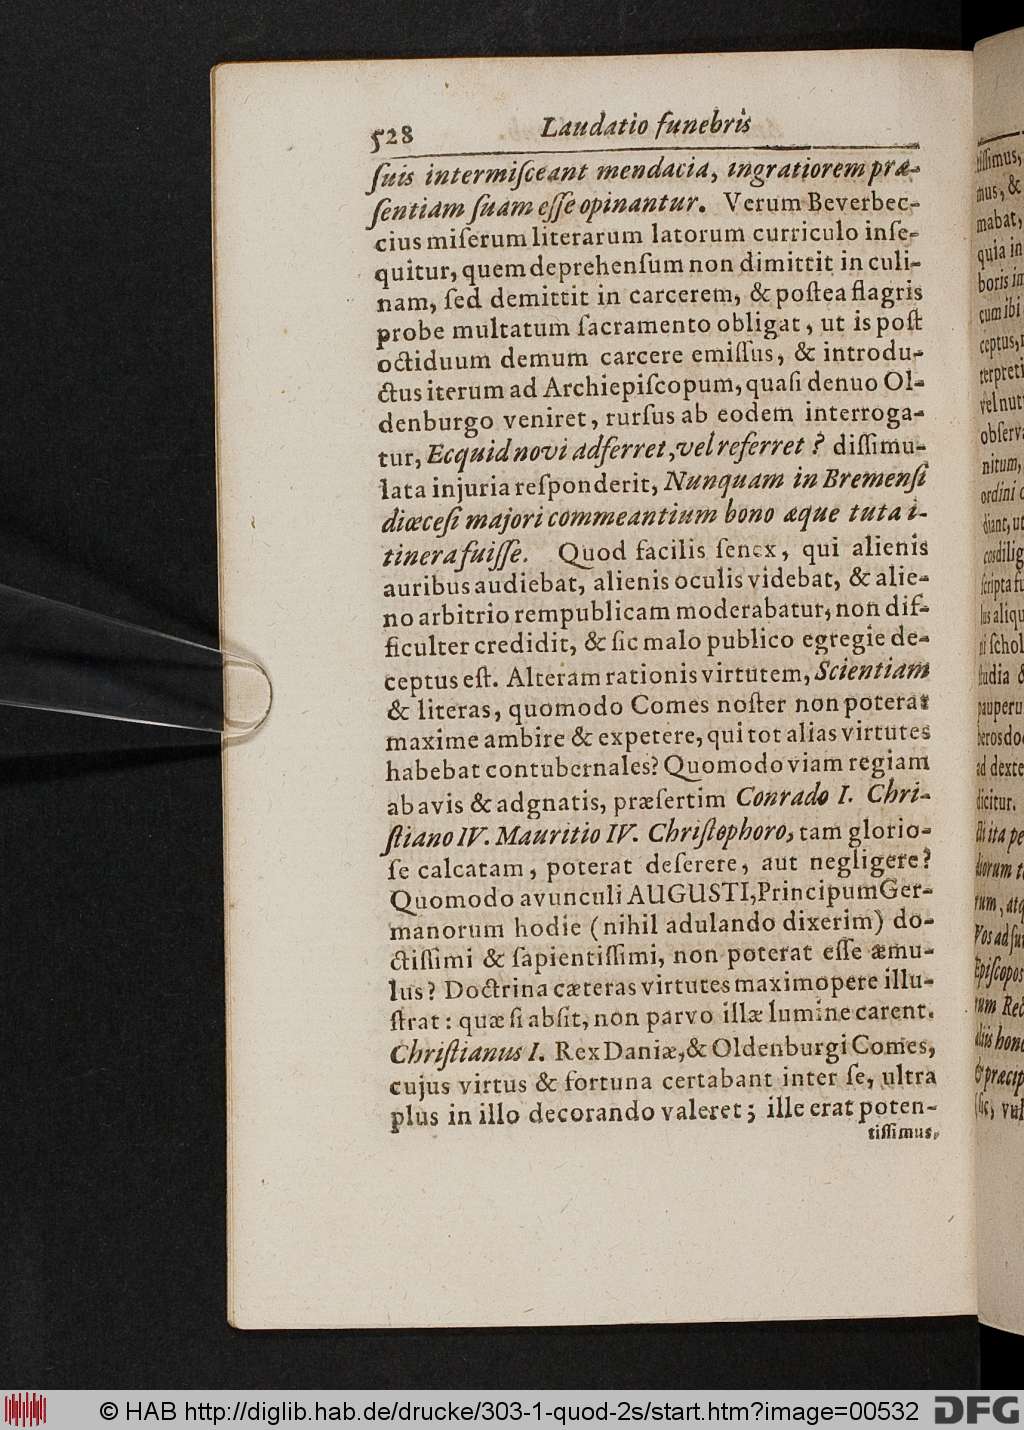 528 Laudatio funebris
ſuis intermiſceant mendacia, ingratiorem præ-
ſentiam ſuam eſſe opinantur. Verum Beverbec-
cius miſerum literarum latorum curriculo inſe-
quitur, quem deprehenſum non dimittit in culi-
nam, ſed demittit in carcerem, & poſtea flagris
probe multatum ſacramento obligat, ut is poſt
octiduum demum carcere emiſſus, & introdu-
ctus iterum ad Archiepiſcopum, quaſi denuo Ol-
denburgo veniret, rurſus ab eodem interroga-
tur, Ecquid novi adferret, vel referret? diſſimu-
lata injuria reſponderit, Nunquam in Bremenſi
diœceſi majori commeantium bono æque tuta i-
tinera fuiſſe. Quod facilis ſenex, qui alienis
auribus audiebat, alienis oculis videbat, & alie-
no arbitrio rempublicam moderabatur, non dif-
ficulter credidit, & ſic malo publico egregie de-
ceptus eſt. Alteram rationis virtutem, Scientiam
& literas, quomodo Comes noſter non poterat
maxime ambire & expetere, qui tot alias virtutes
habebat contubernales? Quomodo viam regiam
ab avis & adgnatis, præſertim Conrado I. Chri-
ſtiano IV. Mauritio IV. Chriſtophoro, tam glorio-
ſe calcatam, poterat deſerere, aut negligere?
Quomodo avunculi AUGUSTI, Principum Ger-
manorum hodie (nihil adulando dixerim) do-
ctiſſimi & ſapientiſſimi, non poterat eſſe æmu-
lus? Doctrina cæteras virtutes maximopere illu-
ſtrat: quæ ſi abſit, non parvo illæ lumine carent.
Chriſtianus I. Rex Daniæ, & Oldenburgi Comes,
cujus virtus & fortuna certabant inter ſe, ultra
plus in illo decorando valeret; ille erat poten-
tiſſimus,
tiſſimus,
mus, &
mabat,
quia in
boris in
cum ibi
ceptus,
terpreti
vel nut
obſerv
nitum,
ordini
diant, ut
cos dilig
ſcripta
lus aliqu
ni ſchol
ſtudia &
pauperu
ad dexte
dicitur.
ſti ita pe
rum, atq
Vos ad
Epiſcopos
rum Rec
aliis hono
& præcip
© HAB http://diglib.hab.de/drucke/303-1-quod-2s/start.htm?image=00532
DFG